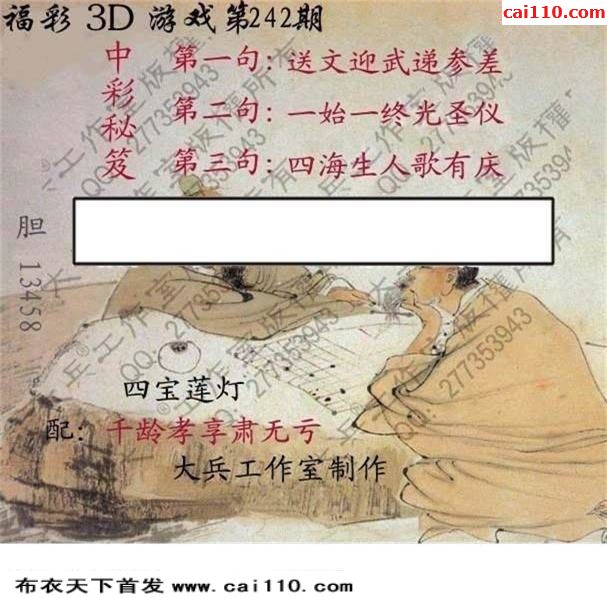 福彩 3D 游戏第242期
cai110.com
中彩秘笈
第一句:送文迎武递参差
第二句:一始一终光圣仪
第三句:四海生人歌有庆
胆 13458
四宝莲灯
配:千龄孝享肃无亏
大兵工作室制作
布衣天下首发 www.cai110.com